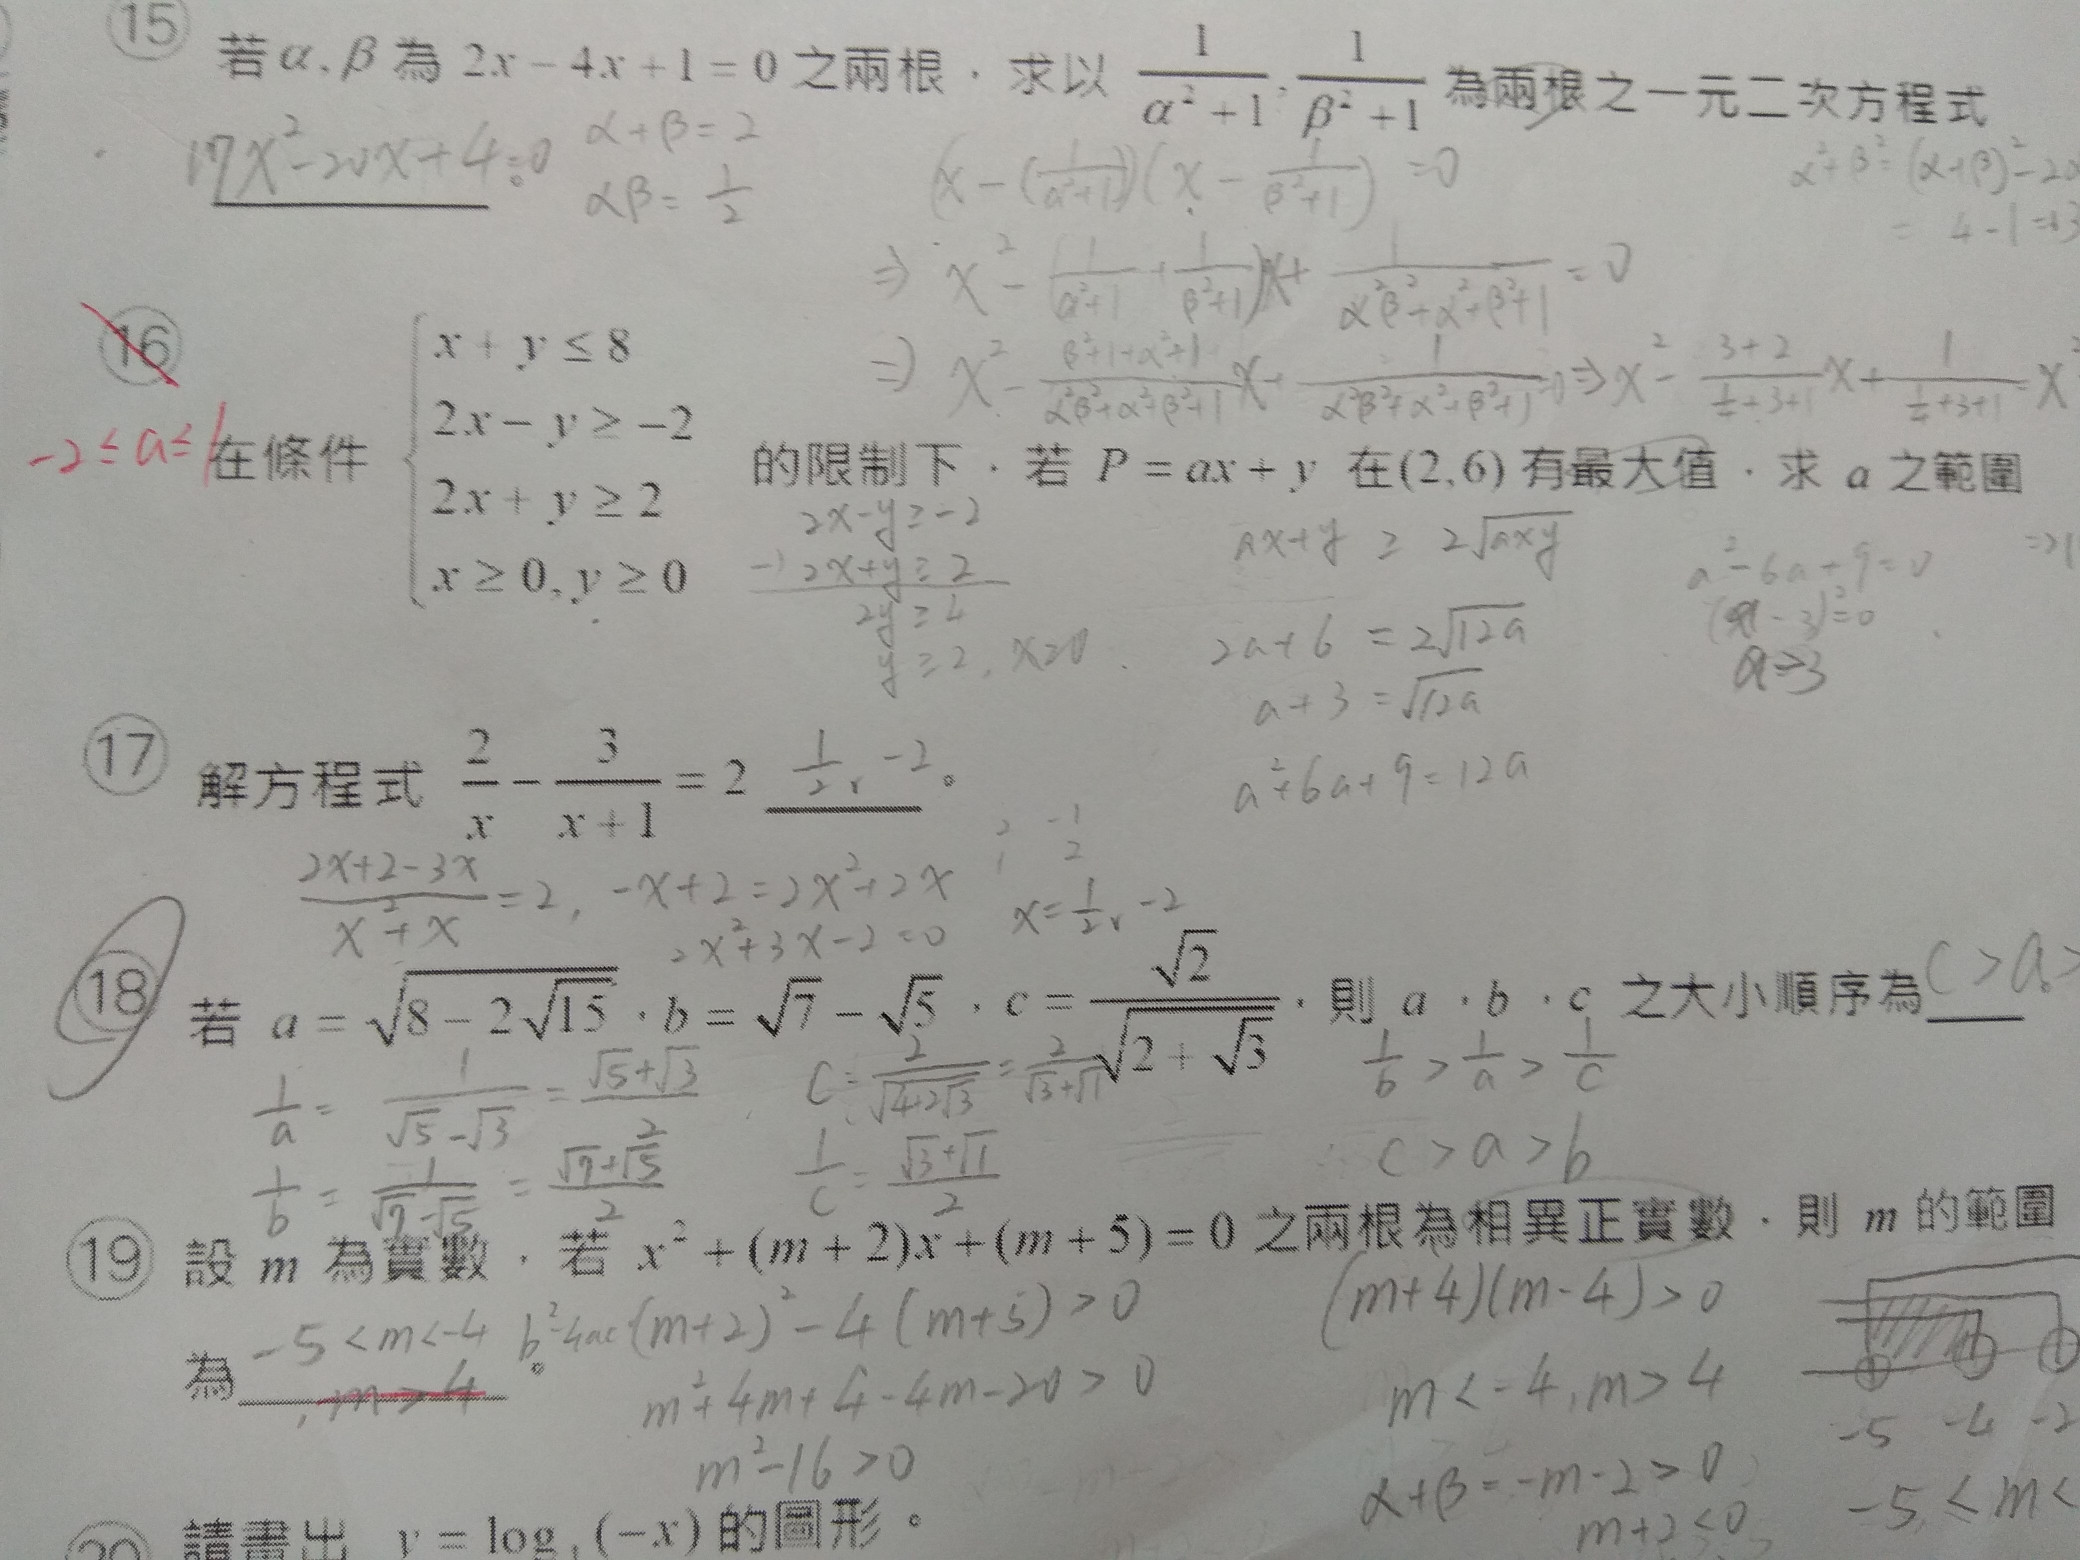 15 若 α, β 為 2x − 4x + 1 = 0 之兩根,求以 1/(α² + 1), 1/(β² + 1) 為兩根之一元二次方程式
17x² − 20x + 4 = 0。
α + β = 2
αβ = 1/2
(x − (1/(α²+1)))(x − 1/(β²+1)) = 0
α² + β² = (α+β)² − 2α
= 4 − 1 = 3
⇒ x² − (1/(α²+1) + 1/(β²+1))x + 1/(α²β²+α²+β²+1) = 0
⇒ x² − (β²+1+α²+1)/(α²β²+α²+β²+1) x + 1/(α²β²+α²+β²+1) = 0 ⇒ x² − (3+2)/(¼+3+1) x + 1/(¼+3+1) = x²
16
−2 ≤ a ≤ 1
在條件 { x + y ≤ 8
2x − y ≥ −2
2x + y ≥ 2
x ≥ 0, y ≥ 0
的限制下,若 P = ax + y 在(2,6) 有最大值,求 a 之範圍
2x−y ≥ −2
−) 2x+y ≥ 2
2y ≥ 4
y ≥ 2, x ≥ 0
ax+y ≥ 2√(axy)
2a+6 = 2√(12a)
a+3 = √(12a)
a²+6a+9 = 12a
a²−6a+9 = 0
(a−3)² = 0
a = 3
17 解方程式 2/x − 3/(x + 1) = 2 1/2, −2 。
(2x+2−3x)/(x²+x) = 2, −x+2 = 2x²+2x
2x²+3x−2 = 0
2 −1
1 2
x = 1/2, −2
18 若 a = √(8 − 2√15),b = √7 − √5,c = √2/√(2 + √3),則 a,b,c 之大小順序為 c > a >
1/a = 1/(√5−√3) = (√5+√3)/2
1/b = 1/(√7−√5) = (√7+√5)/2
c = 2/√(4+2√3) = 2/(√3+√1)
1/c = (√3+√1)/2
1/b > 1/a > 1/c
c > a > b
19 設 m 為實數,若 x² + (m + 2)x + (m + 5) = 0 之兩根為相異正實數,則 m 的範圍
為 −5 < m < −4 , m > 4 。
b²−4ac (m+2)² − 4(m+5) > 0
m²+4m+4−4m−20 > 0
m²−16 > 0
(m+4)(m−4) > 0
m < −4, m > 4
α+β = −m−2 > 0
m+2 < 0
−5 −4 −2
−5 ≤ m <
20 請畫出 y = log (−x) 的圖形。